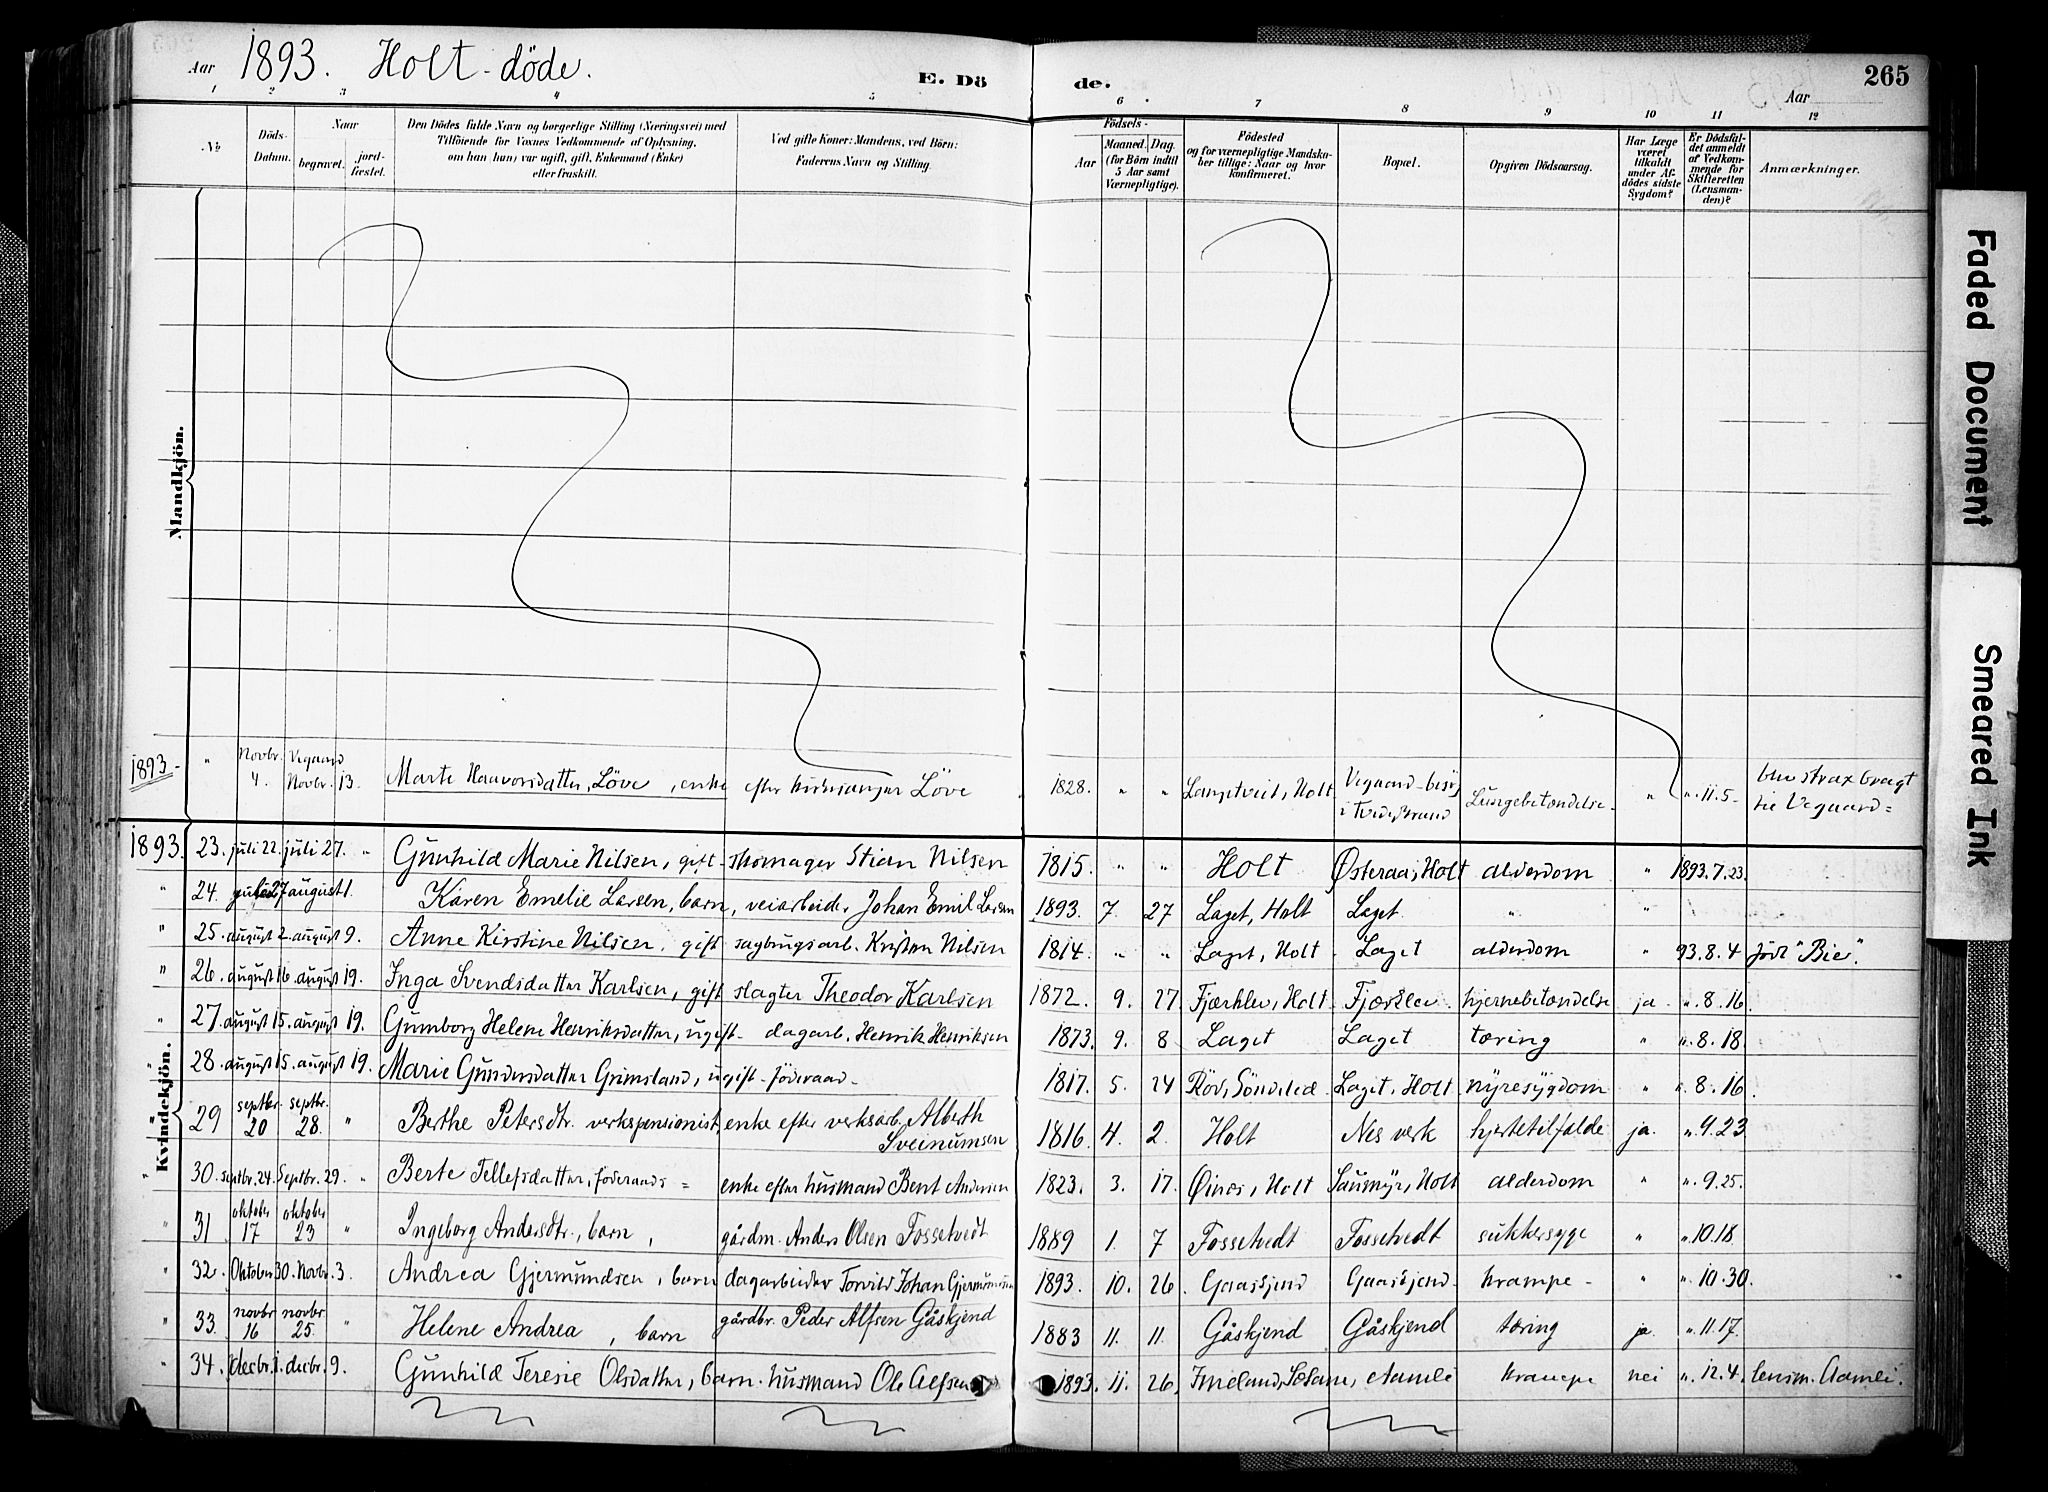 Aar 1893. Holt-döde.
E. Dö de.
Aar
265
1 2 3 4 5 6 7 8 9 10 11 12
No
Döds-Datum.
Naar
begravet.
jord-fæstet.
Den Dödes fulde Navn og borgerlige Stilling (Næringsvei) med
Tilföiende for Voxnes Vedkommende af Oplysning,
om han (hun) var ugift, gift, Enkemand (Enke)
eller fraskilt.
Ved gifte Koner: Mandens, ved Börn:
Faderens Navn og Stilling.
Födsels-
Aar
Maaned. Dag.
(for Börn indtil
5 Aar samt
Værnepligtige).
Födested
og for værnepligtige Mandska-
ber tillige: Naar og hvor
konfirmeret.
Bopæl.
Opgiven Dödsaarsag.
Har Læge
været
tilkaldt
under Af-
dödes sidste
Sygdom?
Er Dödsfal-
det anmeldt
af Vedkom-
mende for
Skifteretten
(Lensman-
den)?
Anmærkninger.
Mandkjön.
1893.- " Novbr. 4. Vegaard Novbr. 13. Marte Haavorsdatter, Löve, enke efter kirkesanger Löve 1828. " " Langtveit, Holt Vegaard-besög i Tvedestrand Lungebetændelse- " ". 11. 5- blev strax bragt til Vegaard=
Kvindekjön.
1893. 23. juli 22. juli 27. " Gunhild Marie Nilsen, gift- skomager Stian Nilsen 1815. " " Holt Østeraa, Holt alderdom " 1893.7.23.
" 24. 27 august 1. Karen Emelie Larsen, barn, veiarbeider Johan Emil Larsen 1893. 7. 27 Laget, Holt Laget. " "
" 25. august 2. august 9. Anne Kirstine Nilsen, gift sagbrugsarb. Kristen Nilsen 1814. " " Laget, Holt. Laget alderdom " 93.8.4 født "Bie".
" 26. august 16. august 19. Inga Svendsdatter Karlsen, gift slagter Theodor Karlsen 1872. 9. 27 Fjærkleiv, Holt Fjærkleiv hjernebetændelse ja. ". 8. 16.
" 27. august 15. august 19. Gunborg Helene Henriksdatter, ugift- dagarb. Henrik Henriksen 1873. 9. 8 Laget Laget tæring " ". 8. 18.
" 28. august 15. august 19. Marie Gundersdatter Grimsland, ugift-föderaad- 1817. 5. 24 Röd, Söndeled. Laget, Holt nyresygdom " ". 8. 16.
" 29 septbr. 20 septbr. 28. " Berthe Petersdtr. verkspensionist, enke efter verksarb. Alberth Sveinumsen 1816. 4. 2. Holt Nes verk hjertetilfælde ja. ". 9. 23
" 30. septbr. 24. Septbr. 29. " Berte Tellefsdatter, föderaads= enke efter husmand Bent Andersen 1823. 3. 17. Øinæs, Holt Saumyr, Holt alderdom " ". 9. 25.
" 31 oktober 17 oktober 23 " Ingeborg Andersdtr., barn, gårdm. Anders Olsen Fossetvedt 1889 1. 7 Fossetvedt Fossetvedt sukkersyge " ". 10. 18.
" 32. Oktober 30. Novbr. 3. Andrea Gjermundsen, barn dagarbeider Torvild Johan Gjermundsen 1893. 10. 26. Gaaskjend Gaaskjend- krampe- " ". 10. 30.
" 33. novbr 16 novbr 25. " Helene Andrea, barn gårdbr. Peder Alfsen Gåskjend 1883 11. 11. Gåskjend Gåskjend tæring ja. ". 11. 17.
" 34. decbr. 1. decbr. 9. Gunhild Teresie Olsdatter, barn. husmand Ole Alfsen 1893. 11. 26, Imeland, Aamli krampe nei ". 12. 4. lensm. Aamli.
Faded Document
Smeared Ink